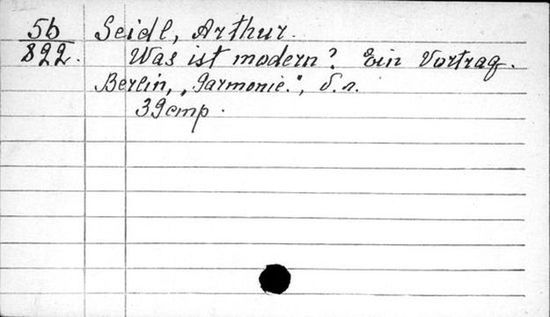 56 Seidl, Arthur.
822. Was ist modern? Ein Vortrag.
Berlin, „Harmonie.", S. a.
39 стр.